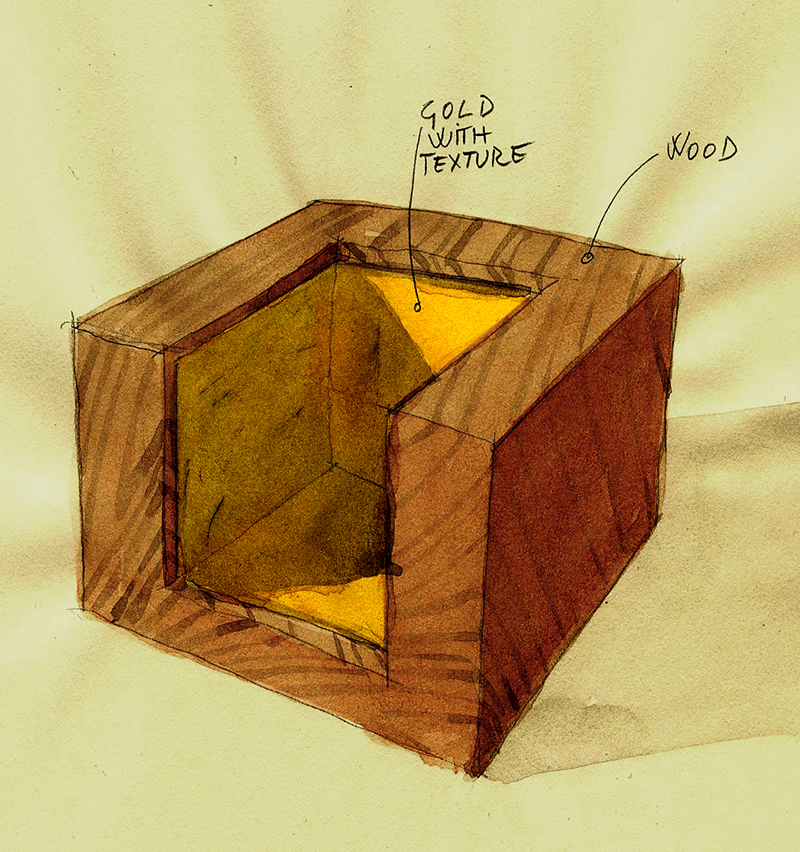 GOLD
WITH
TEXTURE
WOOD